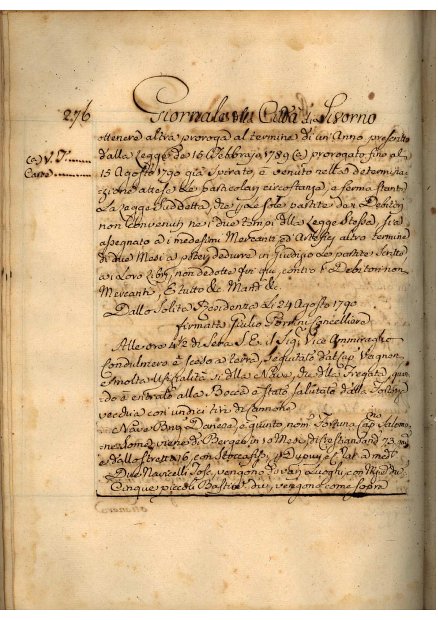 276 Giornale della Città di Livorno
ottenere altra proroga al termine di un'Anno presentto
dalla Legge de 15 Febbrajo 1789 (a) prorogato fino al
(a) V. T.
15 Agosto 1790 già spirato, è venuto nella determina
Carte
zione attese le particolari circostanze, e ferma stante
La Legge suddetta, che quelle sole partite da i Debitori
non convenute nei due tempi della Legge stessa, sia
assegnato a i medesimi Mercanti ed Artefici altro termine
di due Mesi a poter dedurre in giudizio le partite scritte
a i Loro Libri, non dedotte fin qui contro i Debitori non
Mercanti. E tutto &c. Mand. &c.
Dallo Solita Residenza Li 24 Agosto 1790
firmatto Giulio Cancelliere
Alle ore 4½ di Sera S. E. il Sig.r Vice Ammiraglio
Condulmiero è sceso a terra, seguitato dal sup. Vagnon
e molta Ufizialità si della Nave, che della Fregata, quan
do è entrato alla Bocca è stato salutato dalla Fortezza
vecchia con undici tiri di Cannone
Nave Bng. Danese, e quinto nom.o Fortuna Cap.no Salomo
ne viene di Berghen in 10 Mesi, di Cristiansand 73,
e dallo stretto 16, con Stoccafissi, a Dupuy e
Due Navicelli Tosc. vengono da varj Luoghi, con
Cinque piccoli Bastim. vengono come sopra